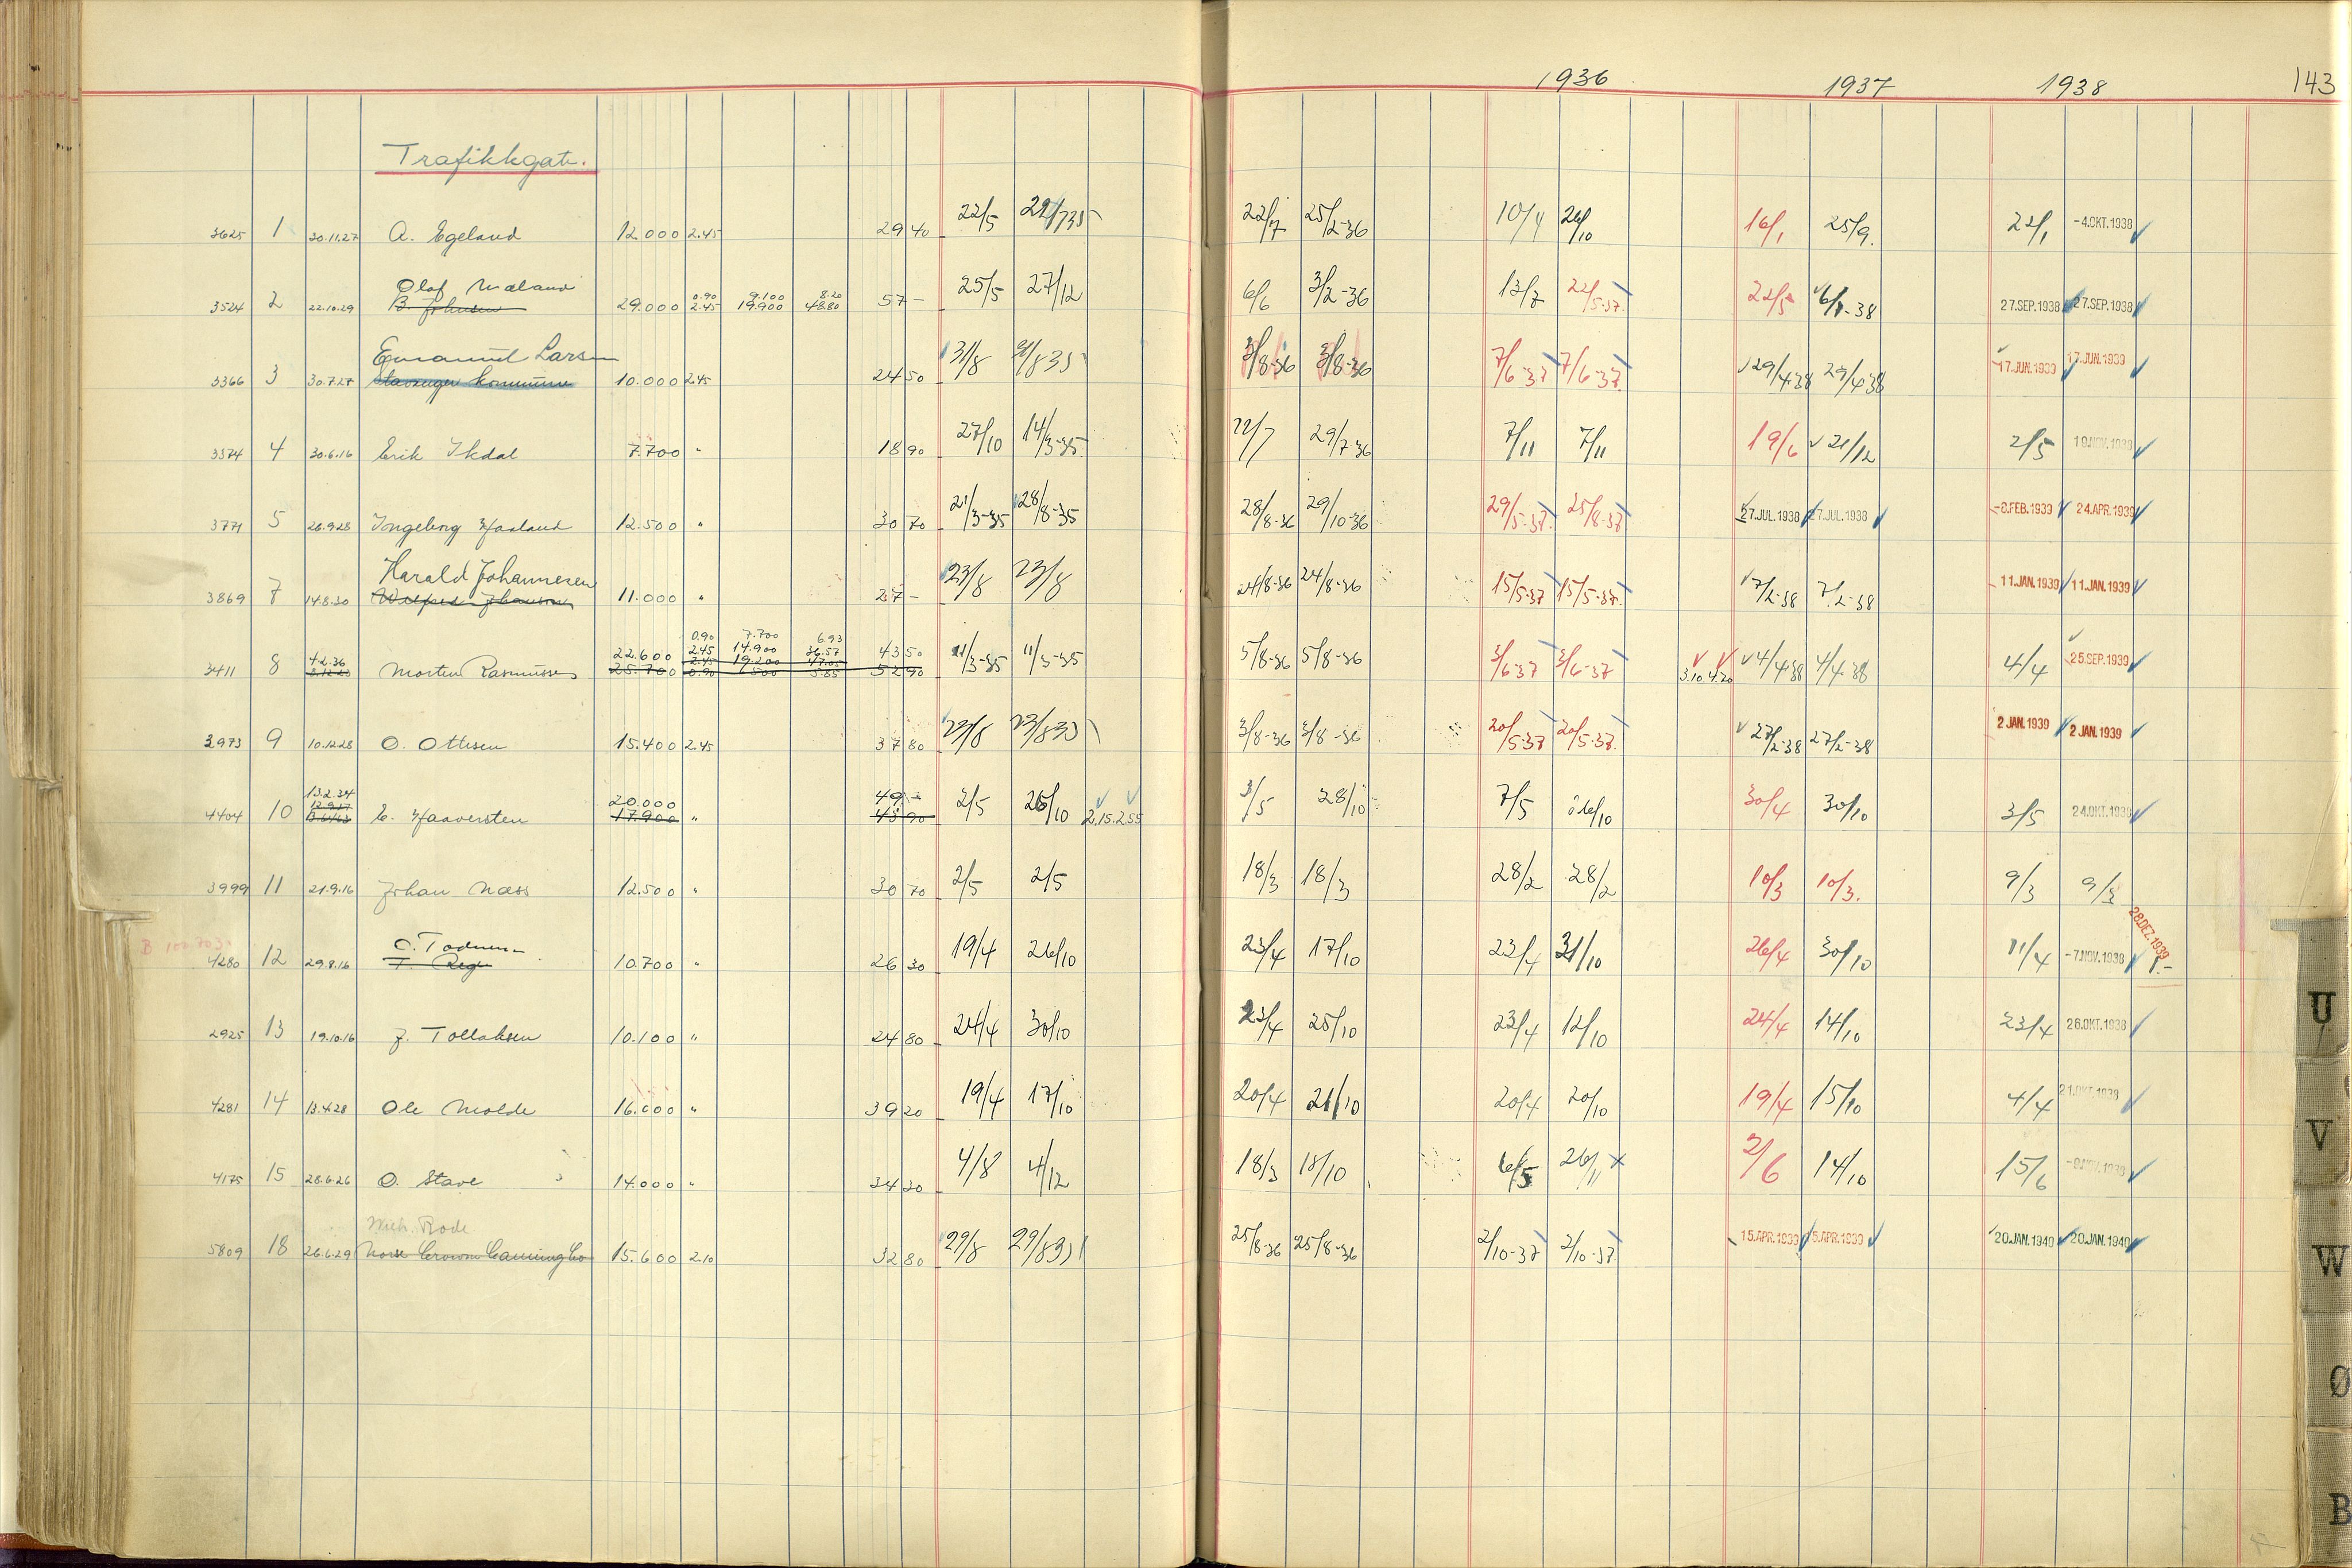 1936 1937 1938 143
Trafikkgate.
3625 1 30.11.27 A. Egeland 12.000 2.45 29 40 22/5 22/7 25/2-36 10/4 26/10 16/1 25/9. 22/1 -4.OKT.1938
Olaf Mæland
0.90 9.100 8.20
3524 2 22.10.29 B. Johnsen 29.000 2.45 19.900 48.80 57 - 25/5 27/12 6/6 3/2-36 13/7 22/5-37. 22/5 6/1-38 27.SEP.1938 27.SEP.1938
Emanuel Larsen
3366 3 30.7.27 Stavanger Kommune 10.000 2.45 24 50 31/8 31/8 35 3/8-36 3/8-36 7/6-37 7/6-37. 29/4-38 29/4-38 17.JUN.1939 17.JUN.1939
3374 4 30.6.16 Erik Ikdal 7.700 " 18 90 27/10 14/3-35 22/7 29/7-36 7/11 7/11 19/6 21/12 2/5 19.NOV.1938
3771 5 26.9.28 Ingeborg Haaland 12.500 " 30 70 21/3-35 28/8-35 28/8-36 29/10-36 29/5-37. 25/8-37 27.JUL.1938 27.JUL.1938 -8.FEB.1939 24.APR.1939
Harald Johannesen
3869 7 14.8.30 11.000 " 27 - 23/8 23/8 24/8-36 24/8-36 15/5-37 15/5-37. 7/2-38 7/2-38 11.JAN.1939 11.JAN.1939
0.90 7.700 6.93
4.2.36 22.600 2.45 14.900 36.57 43 50
3411 8 Morten Rasmussen 25.700 2.45 19.200 47.05 0.90 6500 5.85 52 90 11/3-35 11/3-35 5/8-36 5/8-36 3/6-37 3/6-37 3.10 4.20 4/4-38 4/4-38 4/4 25.SEP.1939
3973 9 10.12.28 O. Ottesen 15.400 2.45 37 80 23/8 23/8 35 3/8-36 3/8-36 20/5-37 20/5-37. 27/2-38 27/2-38 2 JAN.1939 2 JAN.1939
13.2.34 20.000 49 -
4404 10 E. Haaversten 17.900 " 43 90 2/5 26/10 2.15 2.55 3/5 28/10 7/5 26/10 30/4 30/10 3/5 24.OKT.1938
3999 11 21.9.16 Johan Næss 12.500 " 30 70 2/5 2/5 18/3 18/3 28/2 28/2 10/3 10/3. 9/3 9/3
28.DEZ.1939
B 102.703.
4280 12 29.8.16 10.700 " 26 30 19/4 26/10 23/4 17/10 23/4 31/10 26/4 30/10 11/4 -7.NOV.1938 1.-
2925 13 19.10.16 J. Tollaksen 10.100 " 24 80 24/4 30/10 23/4 25/10 23/4 12/10 24/4 14/10 23/4 26.OKT.1938
4281 14 13.4.28 Ole Molde 16.000 " 39 20 19/4 17/10 20/4 21/10 20/4 20/10 19/4 15/10 4/4 21.OKT.1938
4175 15 28.6.26 O. Stave 14.000 " 34 30 4/8 4/12 18/3 18/10 6/5 26/11 x 2/6 14/10 15/6
5809 18 26.6.29 Norse Crown Canning Co 15.600 2.10 32 80 29/8 29/8 35 25/8-36 25/8-36 2/10-37 2/10-37. 15.APR.1939 15.APR.1939 20.JAN.1940 20.JAN.1940
U
V
W
Ø
B